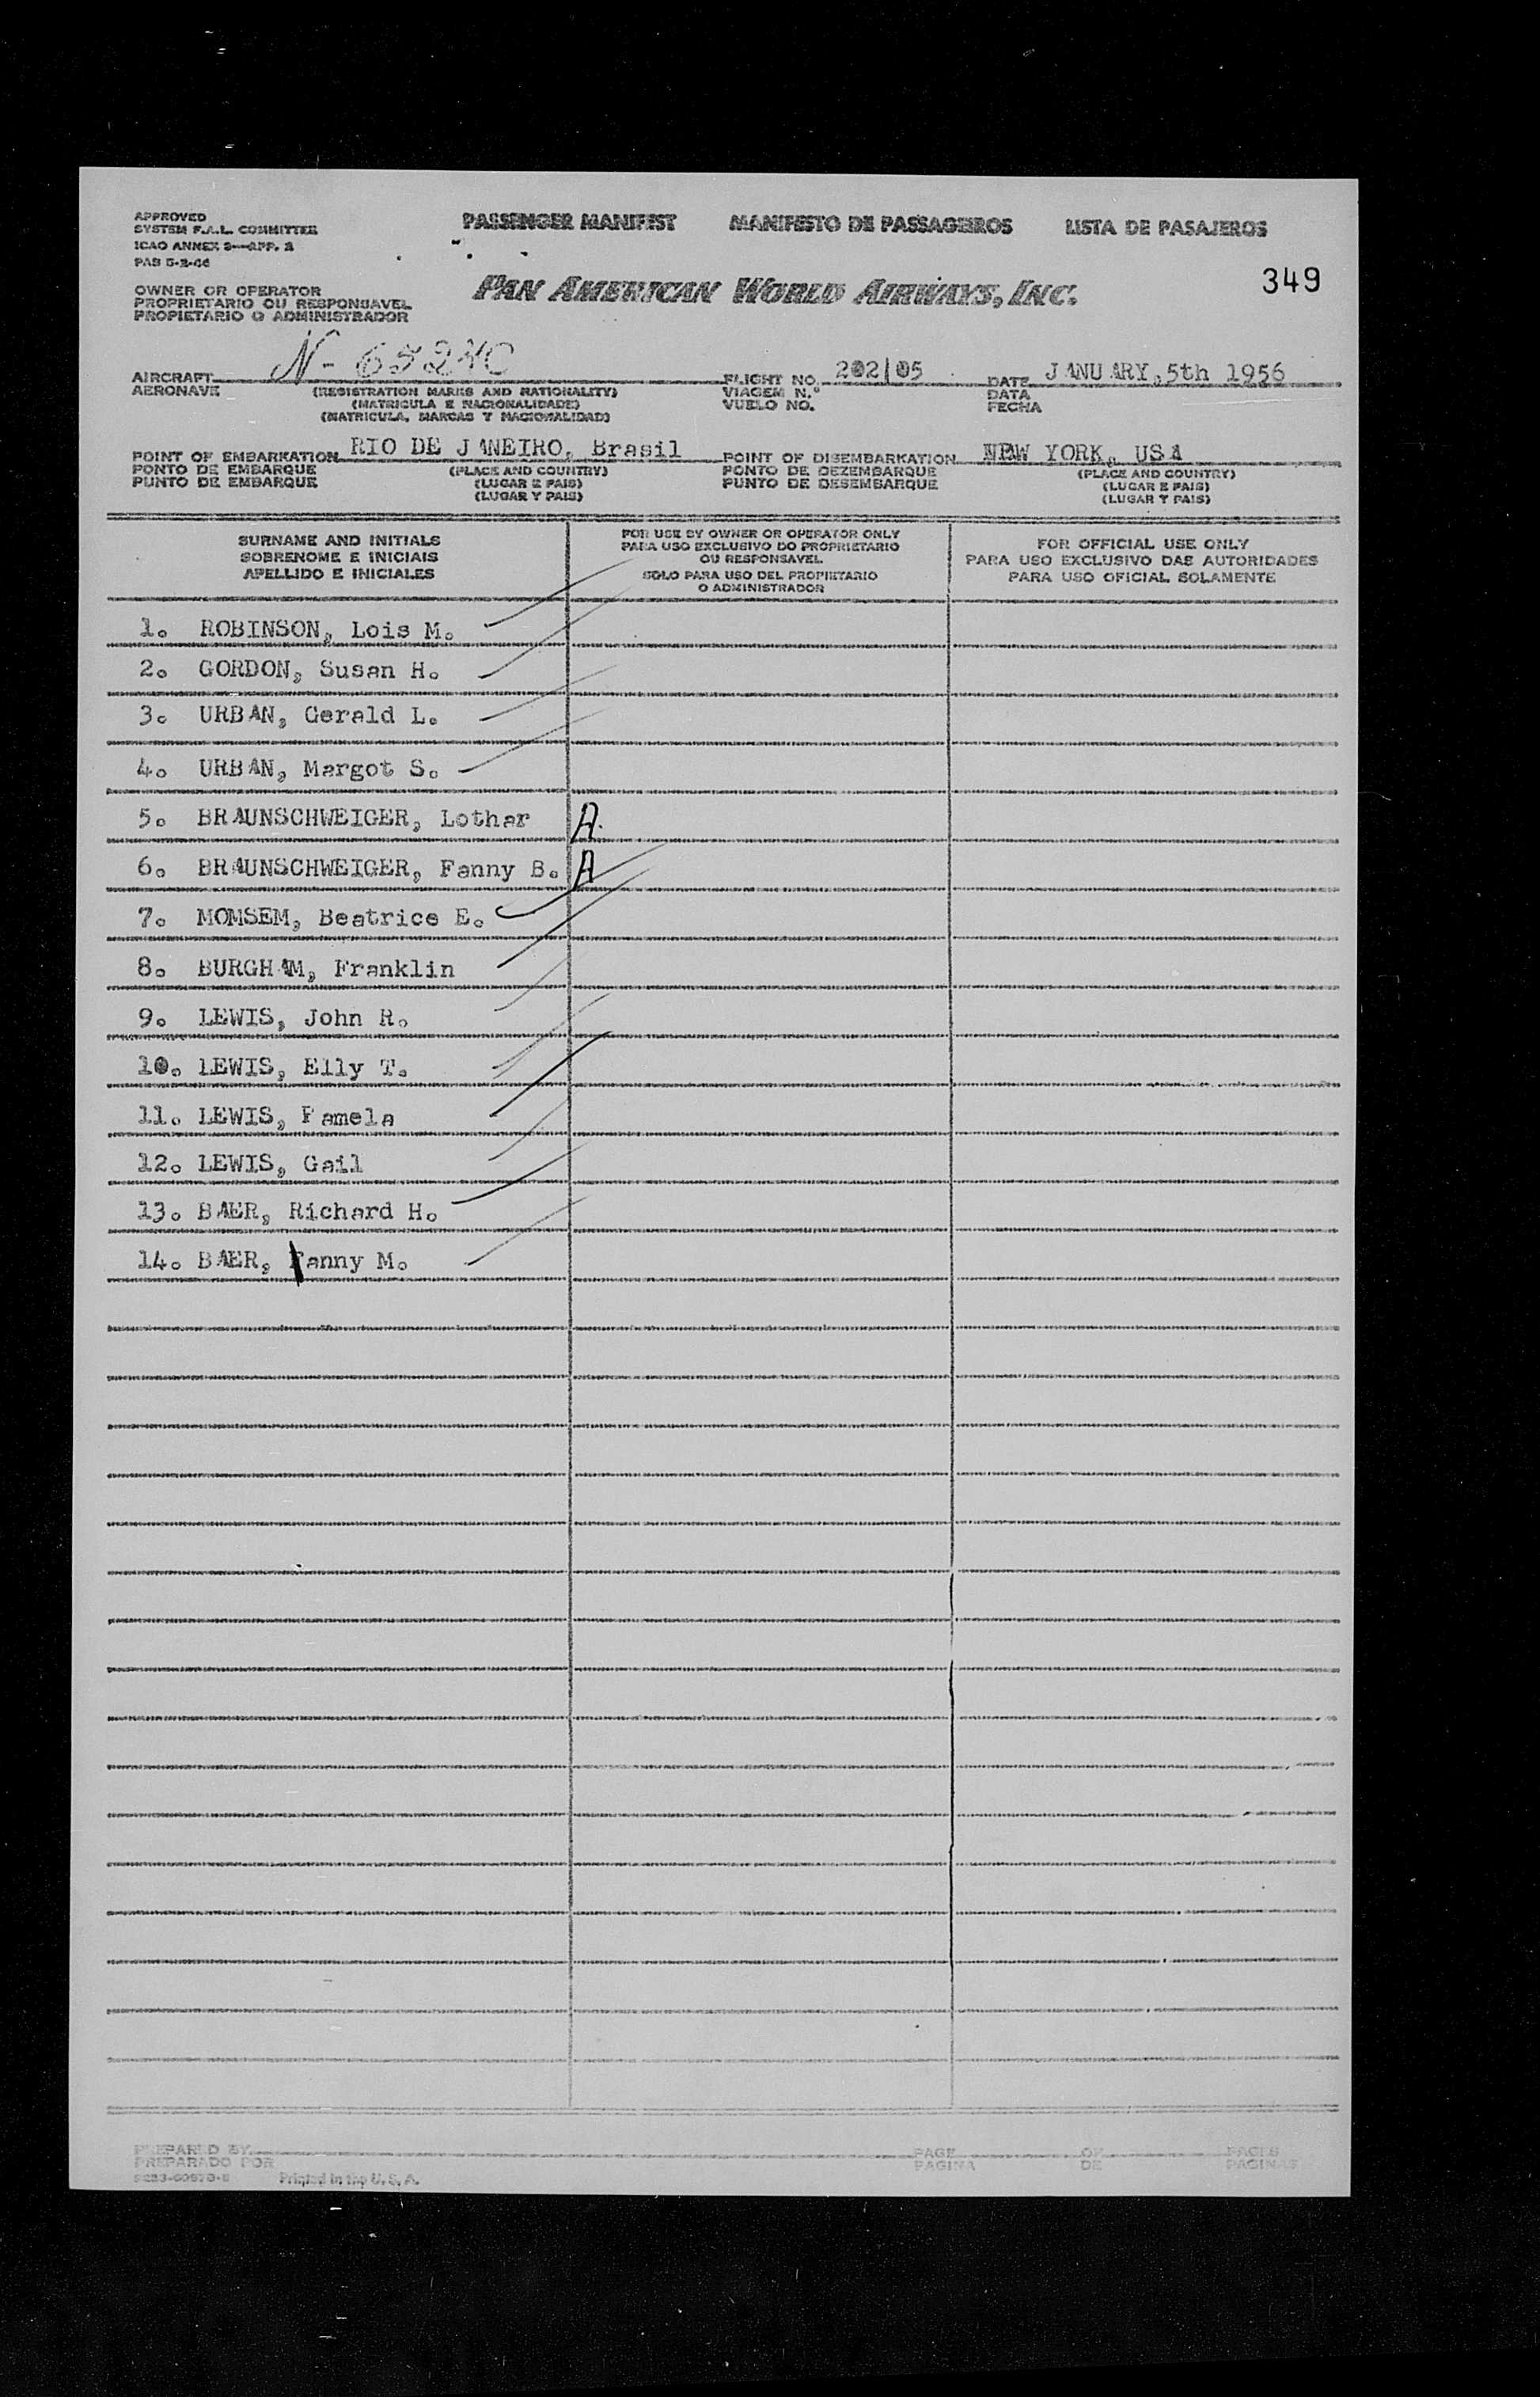 APPROVED
SYSTEM F.A.L. COMMITTEE
ICAO ANNEX 9—APP. 2
PAB 5-2-46
PASSENGER MANIFEST MANIFESTO DE PASSAGEIROS LISTA DE PASAJEROS
OWNER OR OPERATOR
PROPRIETARIO OU RESPONSAVEL
PROPIETARIO O ADMINISTRADOR
PAN AMERICAN WORLD AIRWAYS, INC.
349
AIRCRAFT N-6524C FLIGHT NO. 202/05 DATE JANUARY,5th 1956
AERONAVE (REGISTRATION MARKS AND NATIONALITY) VIAGEM N.º DATA
(MATRICULA E NACIONALIDADE) VUELO NO. FECHA
(MATRICULA, MARCAS Y NACIONALIDAD)
POINT OF EMBARKATION RIO DE JANEIRO, Brasil POINT OF DISEMBARKATION NEW YORK, USA
PONTO DE EMBARQUE (PLACE AND COUNTRY) PONTO DE DEZEMBARQUE (PLACE AND COUNTRY)
PUNTO DE EMBARQUE (LUGAR E PAIS) PUNTO DE DESEMBARQUE (LUGAR E PAIS)
(LUGAR Y PAIS) (LUGAR Y PAIS)
SURNAME AND INITIALS
SOBRENOME E INICIAIS
APELLIDO E INICIALES
FOR USE BY OWNER OR OPERATOR ONLY
PARA USO EXCLUSIVO DO PROPRIETARIO
OU RESPONSAVEL
SOLO PARA USO DEL PROPIETARIO
O ADMINISTRADOR
FOR OFFICIAL USE ONLY
PARA USO EXCLUSIVO DAS AUTORIDADES
PARA USO OFICIAL SOLAMENTE
1. ROBINSON, Lois M.
2. GORDON, Susan H.
3. URBAN, Gerald L.
4. URBAN, Margot S.
5. BRAUNSCHWEIGER, Lothar A.
6. BRAUNSCHWEIGER, Fanny B. A
7. MOMSEM, Beatrice E.
8. BURGHAM, Franklin
9. LEWIS, John R.
10. LEWIS, Elly T.
11. LEWIS, Pamela
12. LEWIS, Gail
13. BAER, Richard H.
14. BAER, Fanny M.
PREPARED BY PAGE OF PAGES
PREPARADO POR PAGINA DE PAGINAS
Printed in the U. S. A.